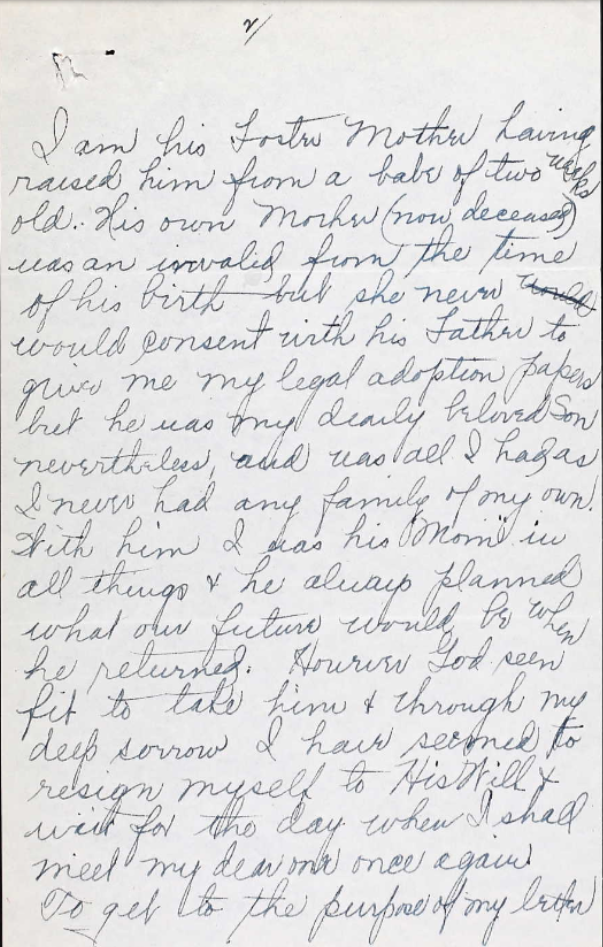 2/
I am his Foster Mother having
raised him from a babe of two weeks
old. His own Mother (now deceased)
was an invalid from the time
of his birth but she never would
would consent with his Father to
give me my legal adoption papers
but he was my dearly beloved Son
nevertheless, and was all I had, as
I never had any family of my own.
With him I was his "Mom" in
all things & he always planned
what our future would be when
he returned. However God seen
fit to take him & through my
deep sorrow I have seemed to
resign myself to His Will &
wait for the day when I shall
meet my dear one once again.
To get to the purpose of my letter